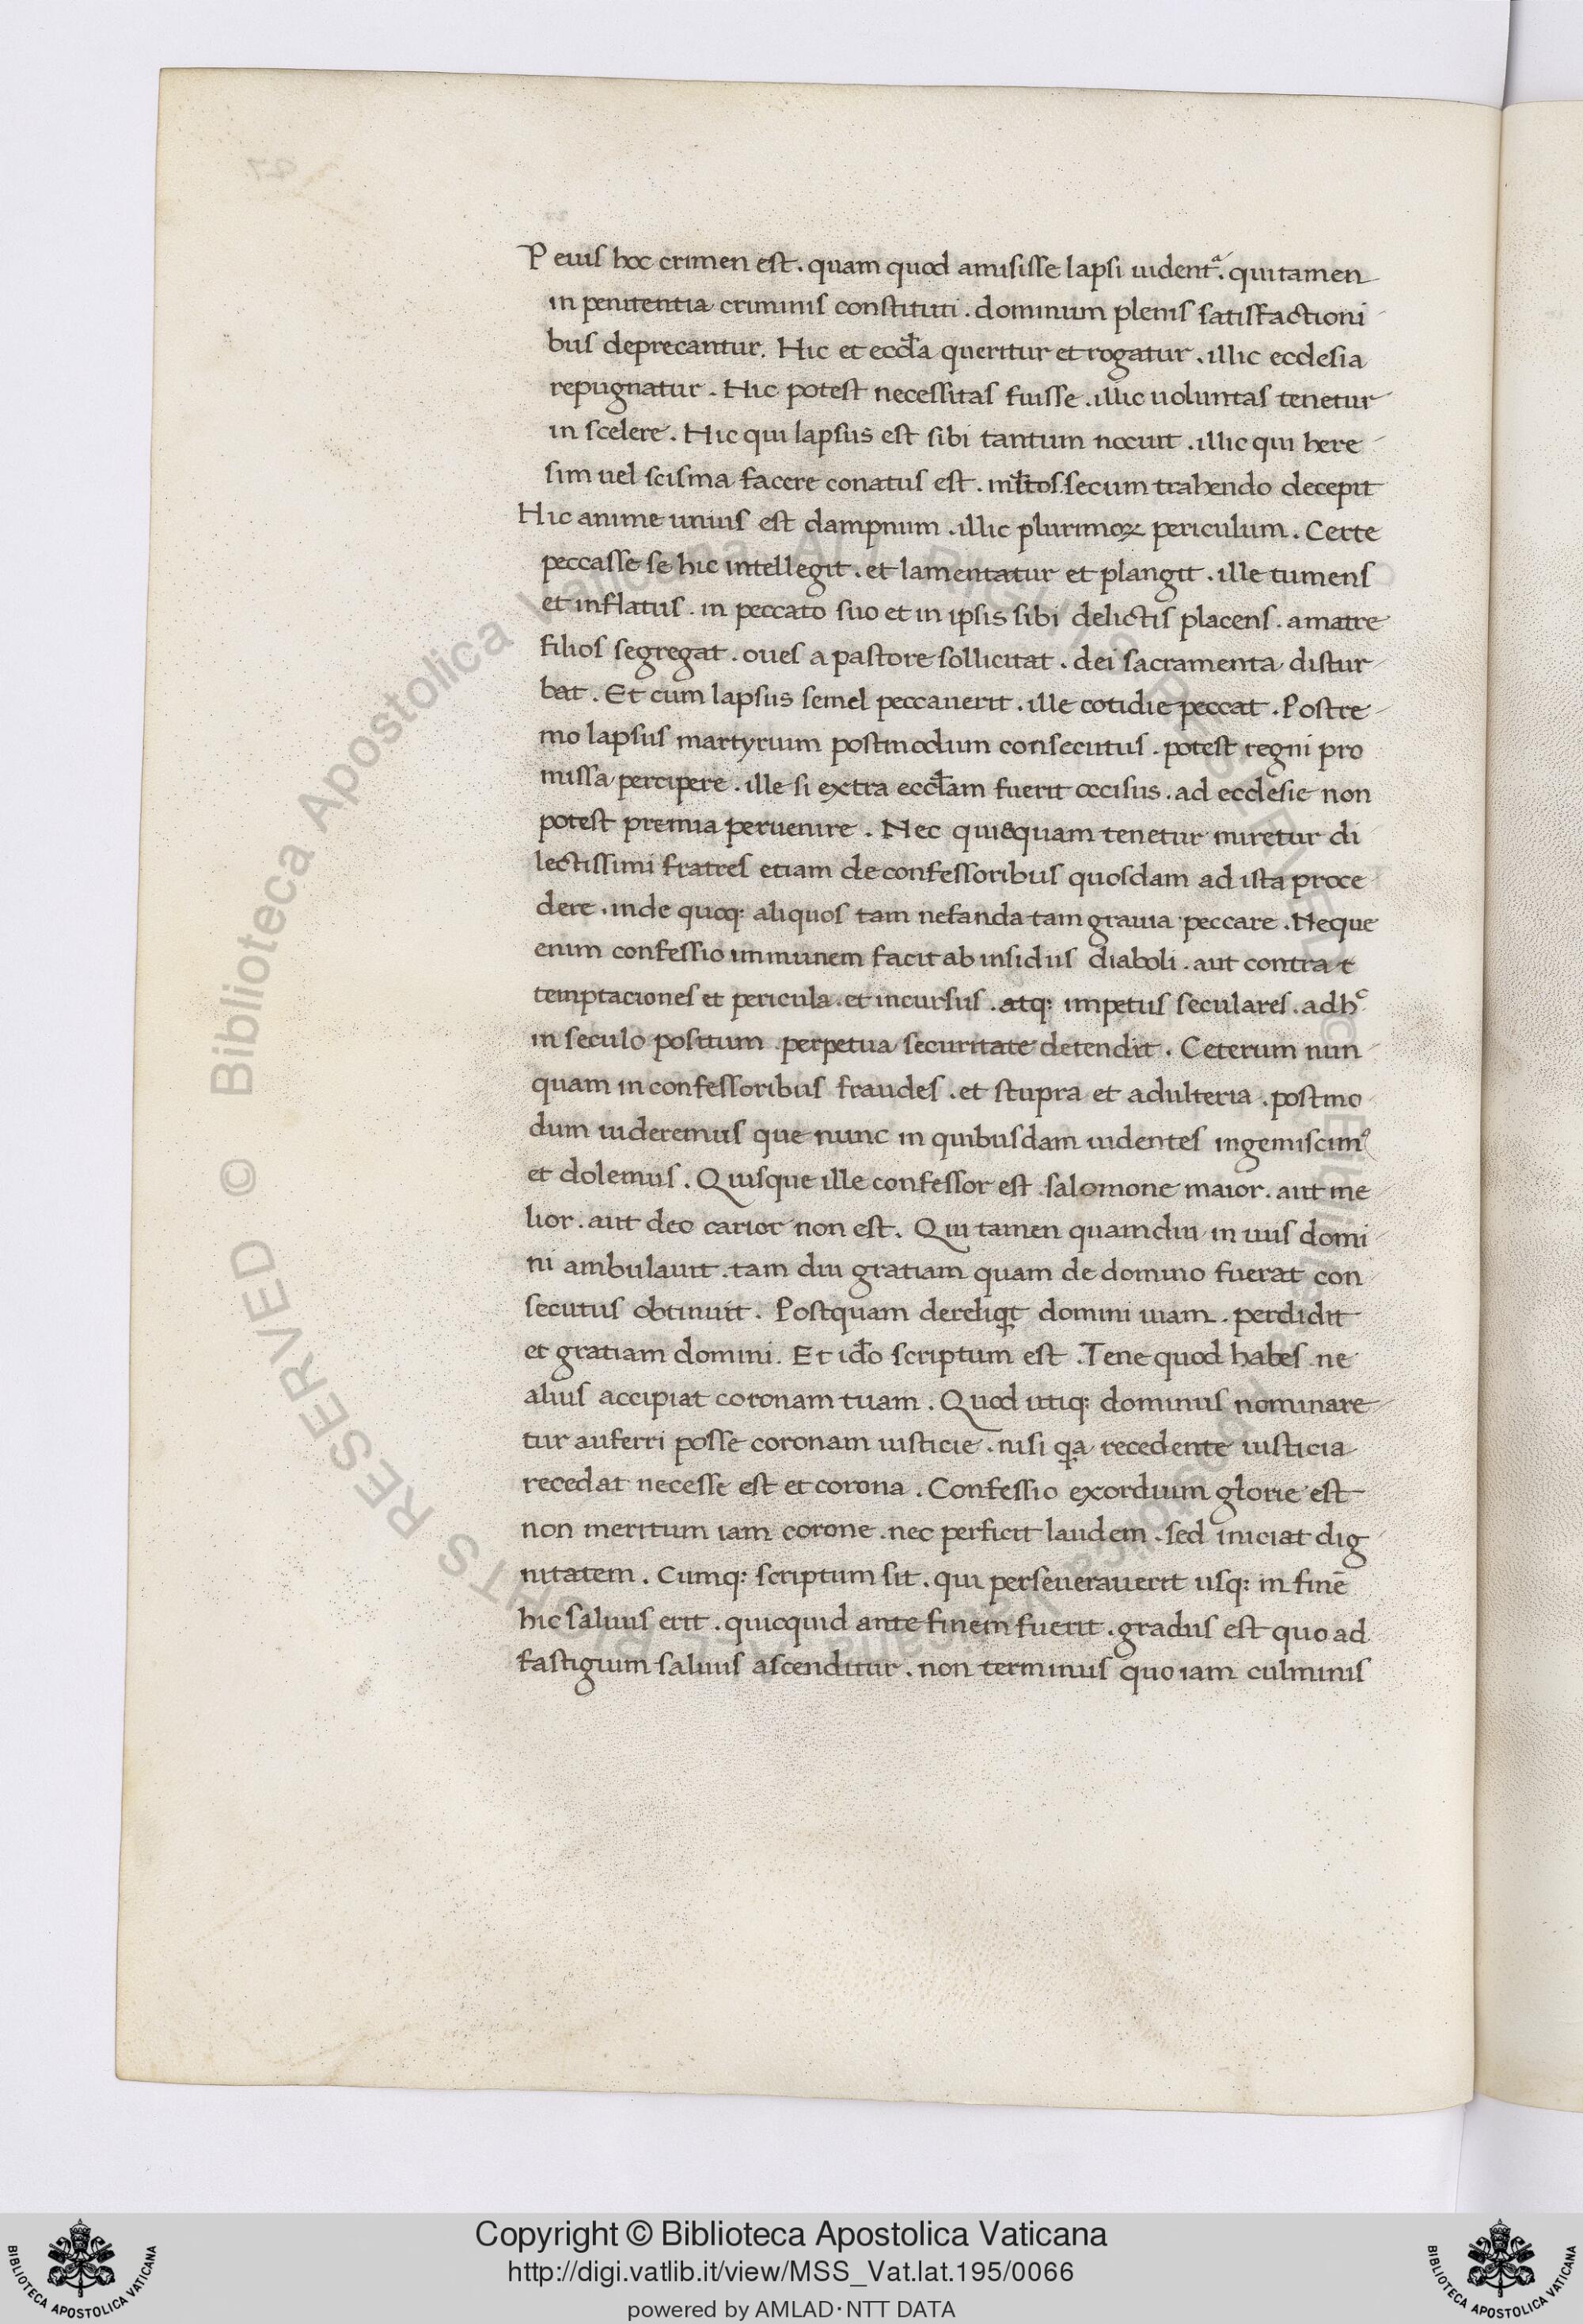 Peius hoc crimen est. quam quod amisisse lapsi uidentᵃ. qui tamen
in penitentia criminis constituti. dominum plenis satisfactioni
bus deprecantur. Hic et eccl̄a queritur et rogatur. illic ecclesia
repugnatur. Hic potest necessitas fuisse. illic uoluntas tenetur
in scelere. Hic qui lapsus est sibi tantum nocuit. illic qui here
sim uel scisma facere conatus est. ml̄tos secum trahendo decepit
Hic anime unius est dampnum. illic plurimoꝝ periculum. Certe
peccasse se hic intellegit. et lamentatur et plangit. ille tumens
et inflatus. in peccato suo et in ipsis sibi delictis placens. a matre
filios segregat. oues a pastore sollicitat. dei sacramenta distur
bat. Et cum lapsus semel peccauerit. ille cotidie peccat. Postre
mo lapsus martyrium postmodum consecutus. potest regni pro
missa percipere. ille si extra eccl̄am fuerit occisus. ad ecclesie non
potest premia peruenire. Nec quisquam tenetur miretur di
lectissimi fratres etiam de confessoribus quosdam ad ista proce
dere. inde quoq: aliquos tam nefanda tam grauia peccare. Neque
enim confessio immunem facit ab insidiis diaboli. aut contra t
temptaciones et pericula. et incursus. atq: impetus seculares. adhᶜ
in seculo positum. perpetua securitate detendit. Ceterum nun
quam in confessoribus fraudes. et stupra et adulteria. postmo
dum uideremus que nunc in quibusdam uidentes ingemiscimꝰ
et dolemus. Quisque ille confessor est. salomone maior. aut me
lior. aut deo carior non est. Qui tamen quamdiu in uiis domi
ni ambulauit. tam diu gratiam quam de domino fuerat con
secutus obtinuit. Postquam dereliqt domini uiam. perdidit
et gratiam domini. Et id̄o scriptum est. Tene quod habes. ne
alius accipiat coronam tuam. Quod utiq: dominus nominare
tur auferri posse coronam iusticie. nisi qa recedente iusticia
recedat necesse est et corona. Confessio exordium glorie est
non meritum iam corone. nec perficit laudem. sed iniciat dig
nitatem. Cumq: scriptum sit. qui perseuerauerit usq: in finē
hic saluus erit. quicquid ante finem fuerit. gradus est quo ad
fastigium saluus ascenditur. non terminus quo iam culminis
Copyright © Biblioteca Apostolica Vaticana
http://digi.vatlib.it/view/MSS_Vat.lat.195/0066
powered by AMLAD·NTT DATA